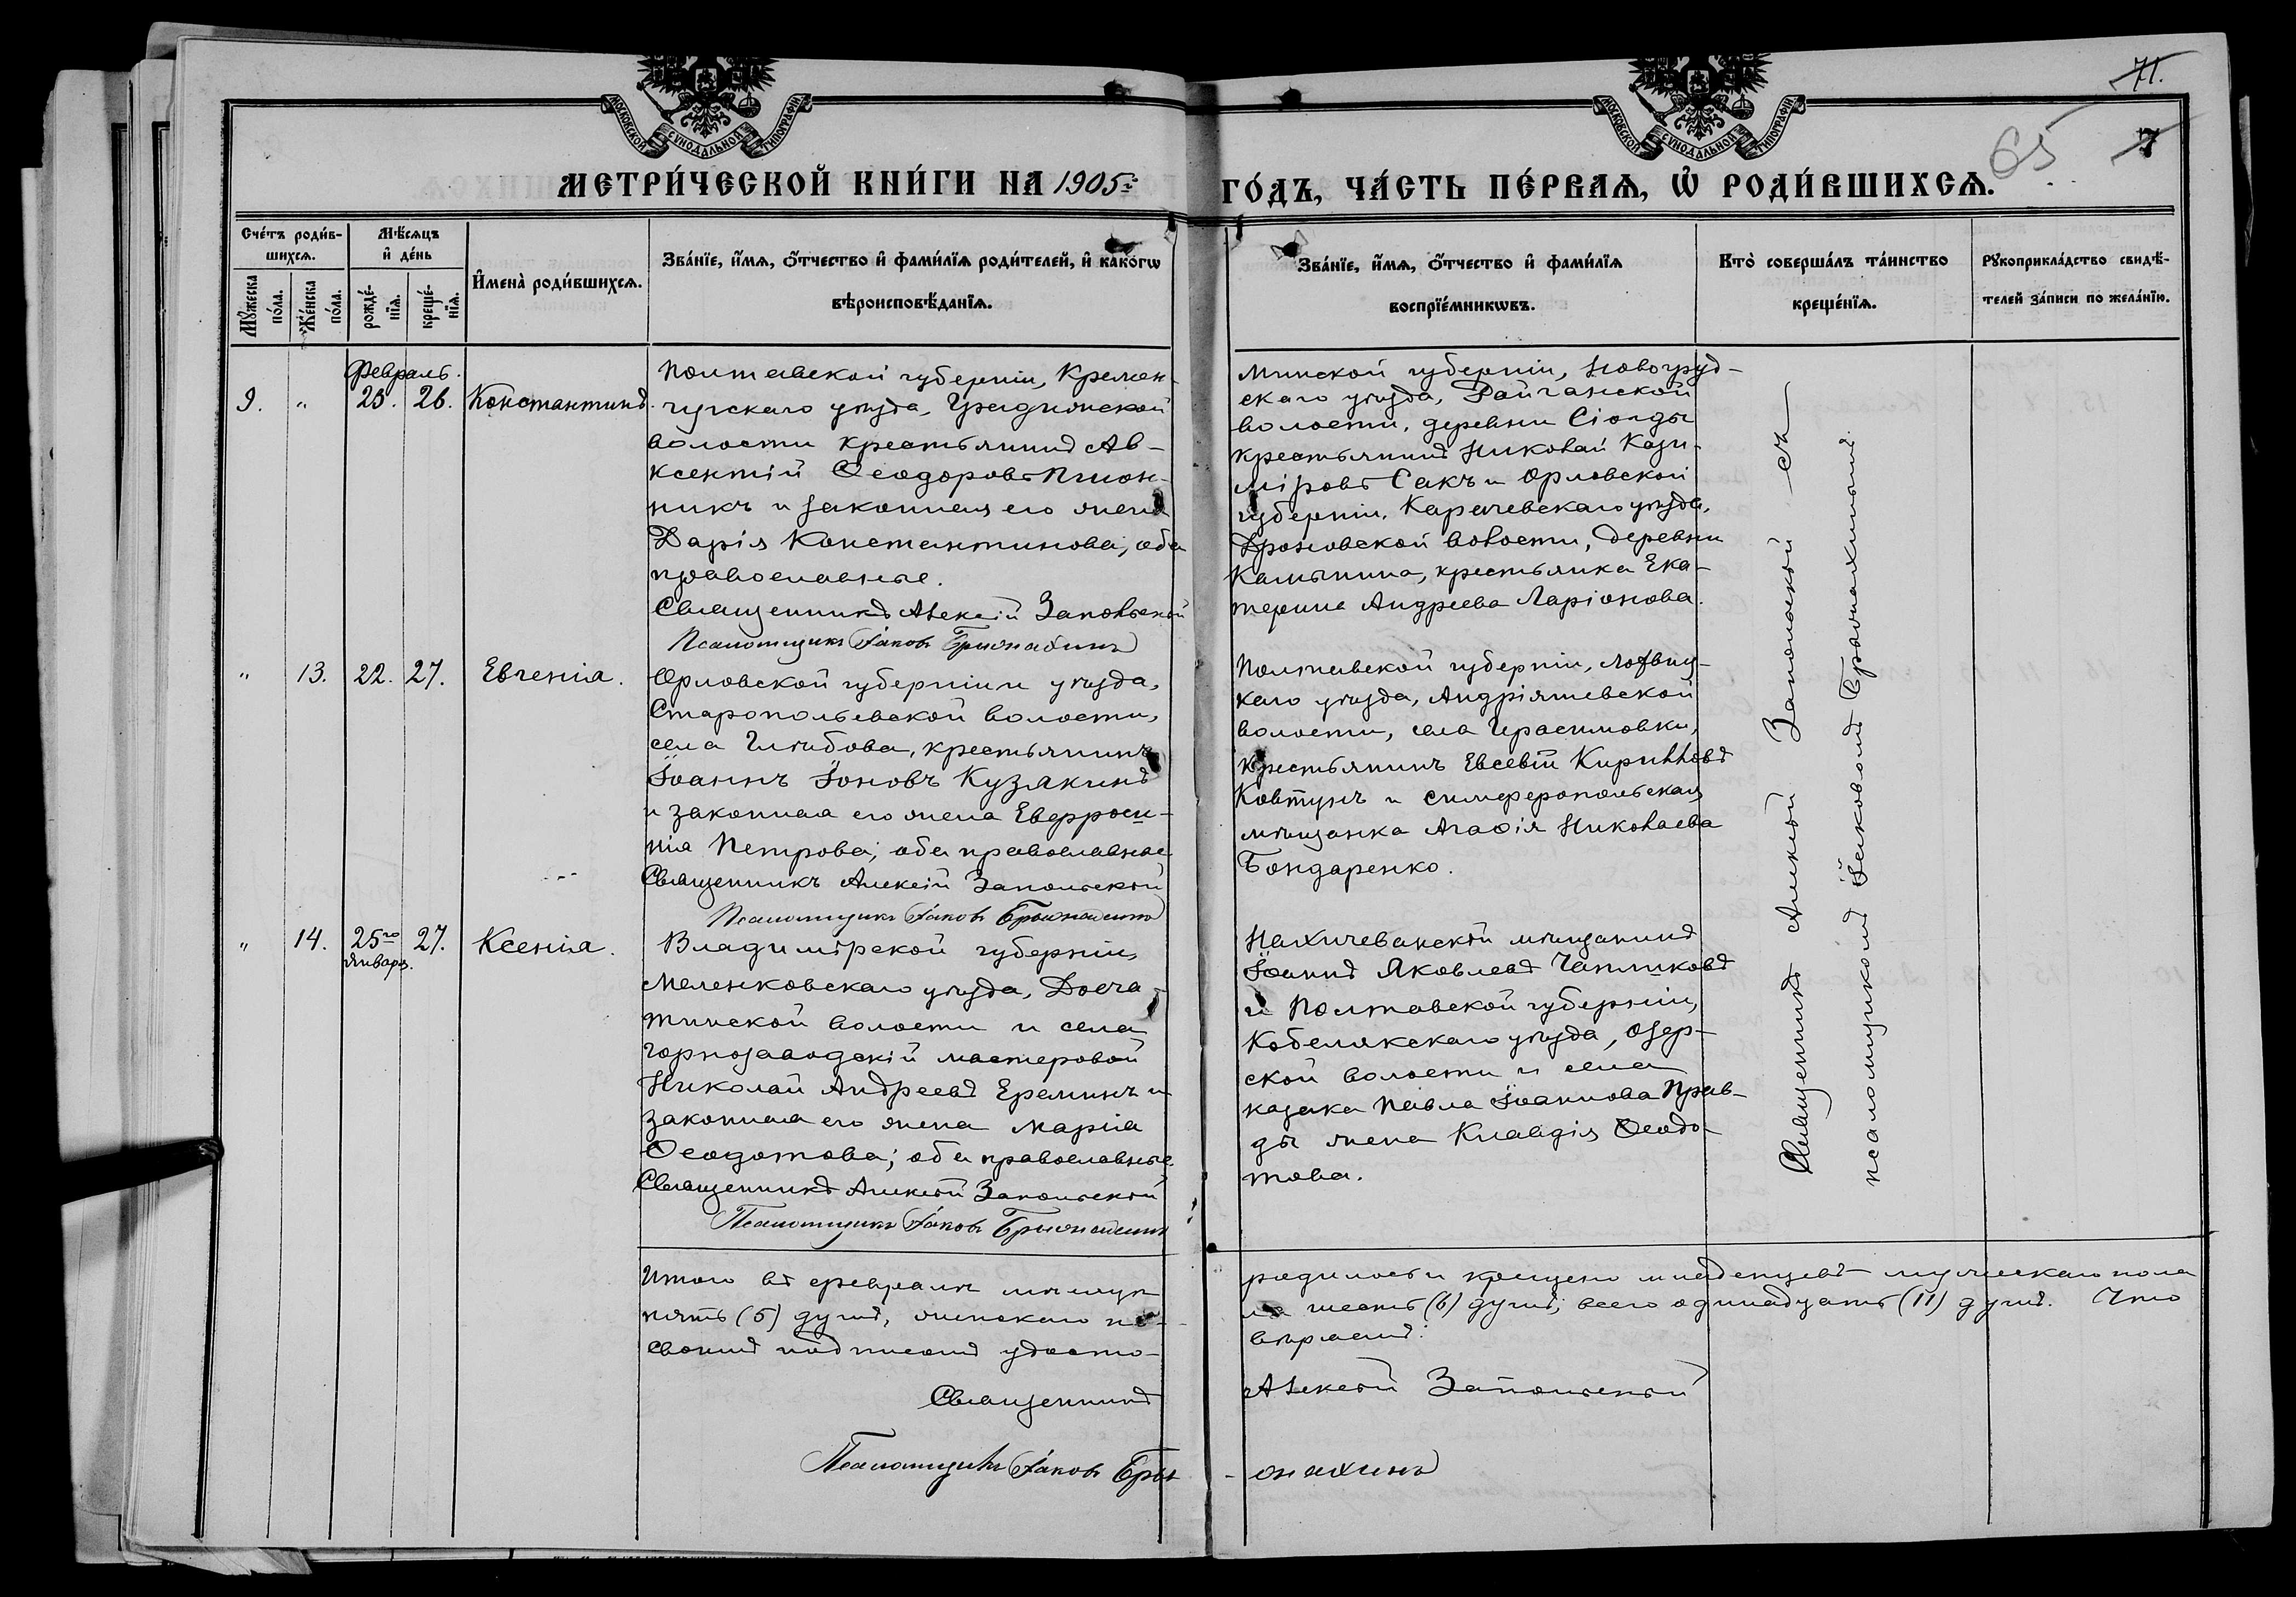 71.
65 7
МОСКОВСКОЙ СѴНОДАЛЬНОЙ ТИПОГРАФІИ
МОСКОВСКОЙ СѴНОДАЛЬНОЙ ТИПОГРАФІИ
МЕТРИ́ЧЕСКОЙ КНИ́ГИ НА 1905й
ГО́ДЪ, ЧА́СТЬ ПЕ́РВАѦ, Ѡ҆ РОДИ́ВШИХСѦ.
Сче́тъ роди́в-
шихсѧ.
Мꙋ́жеска по́ла.
Же́нска по́ла.
Мѣ́сѧцъ
и҆ де́нь
рожде́-
нїѧ.
креще́-
нїѧ.
И҆мена̀ роди́вшихсѧ.
Зва́нїе, и҆́мѧ, ѻ҆́тчество и҆ фами́лїѧ роди́телей, и҆ како́гѡ
вѣроисповѣ́данїѧ.
Зва́нїе, и҆́мѧ, ѻ҆́тчество и҆ фами́лїѧ
воспрїе́мникѡвъ.
Кто̀ соверша́лъ та́инство
креще́нїѧ.
Рꙋкоприкла́дство свидѣ́-
телей за́писи по жела́нїю.
Февраль.
9. " 25. 26. Константинъ.
Полтавской губерніи, Кремен-
чугскаго уѣзда, Градижской
волости крестьянинъ Ав-
ксентій Ѳеодоровъ
никъ и законная его жена
Дарія Константинова; оба
православные.
Священникъ Алексій Запольскій
Псаломщикъ Іаковъ Брионахинъ
Минской губерніи, Новогруд-
скаго уѣзда, Райчанской
волости, деревни Сіонды
крестьянинъ Николай Кази-
міровъ Сакъ и Орловской
губерніи, Карачевскаго уѣзда,
Дроновской волости, деревни
Камынина, крестьянка Ека-
терина Андреева Ларіонова.
" 13. 22. 27. Евгенія.
Орловской губерніи и уѣзда,
Старопольевской волости,
села Глѣбова, крестьянинъ
Іоаннъ Іоновъ Кузякинъ
и законная его жена Евфроси-
нія Петрова; оба православные
Священникъ Алексій Запольскій
Псаломщикъ Іаковъ Брионахинъ
Полтавской губерніи, Лохвиц-
каго уѣзда, Андріяшевской
волости, села Герасимовки,
крестьянинъ Евсевій Кирилловъ
Ковтунъ и симферопольская
мѣщанка Агаѳія Николаева
Бондаренко.
" 14. 25го 27. Ксенія.
Января.
Владимірской губерніи,
Меленковскаго уѣзда, Досча-
тинской волости и села
горнозаводскій мастеровой
Николай Андреевъ Ереминъ и
законная его жена Марія
Ѳеодотова; оба православные.
Священникъ Алексій Запольскій
Псаломщикъ Іаковъ Брионахинъ
Нахичеванскій мѣщанинъ
Іоаннъ Яковлевъ Чаплыковъ
и Полтавской губерніи,
Кобелякскаго уѣзда, Озер-
ской волости и села
казака Павла Іоаннова Прав-
ды жена Клавдія Ѳеодо-
това.
Священникъ Алексій Запольскій съ
псаломщикомъ Іаковомъ Брионахинымъ.
Итого въ февралѣ мѣсяцѣ родилось и крещено младенцевъ мужескаго пола
пять (5) душъ, женскаго по- ла шесть (6) душъ; всего одинадцать (11) душъ. Что
своимъ подписомъ удосто- вѣряемъ:
Священникъ Алексій Запольскій
Псаломщикъ Іаковъ Бріи - онахинъ